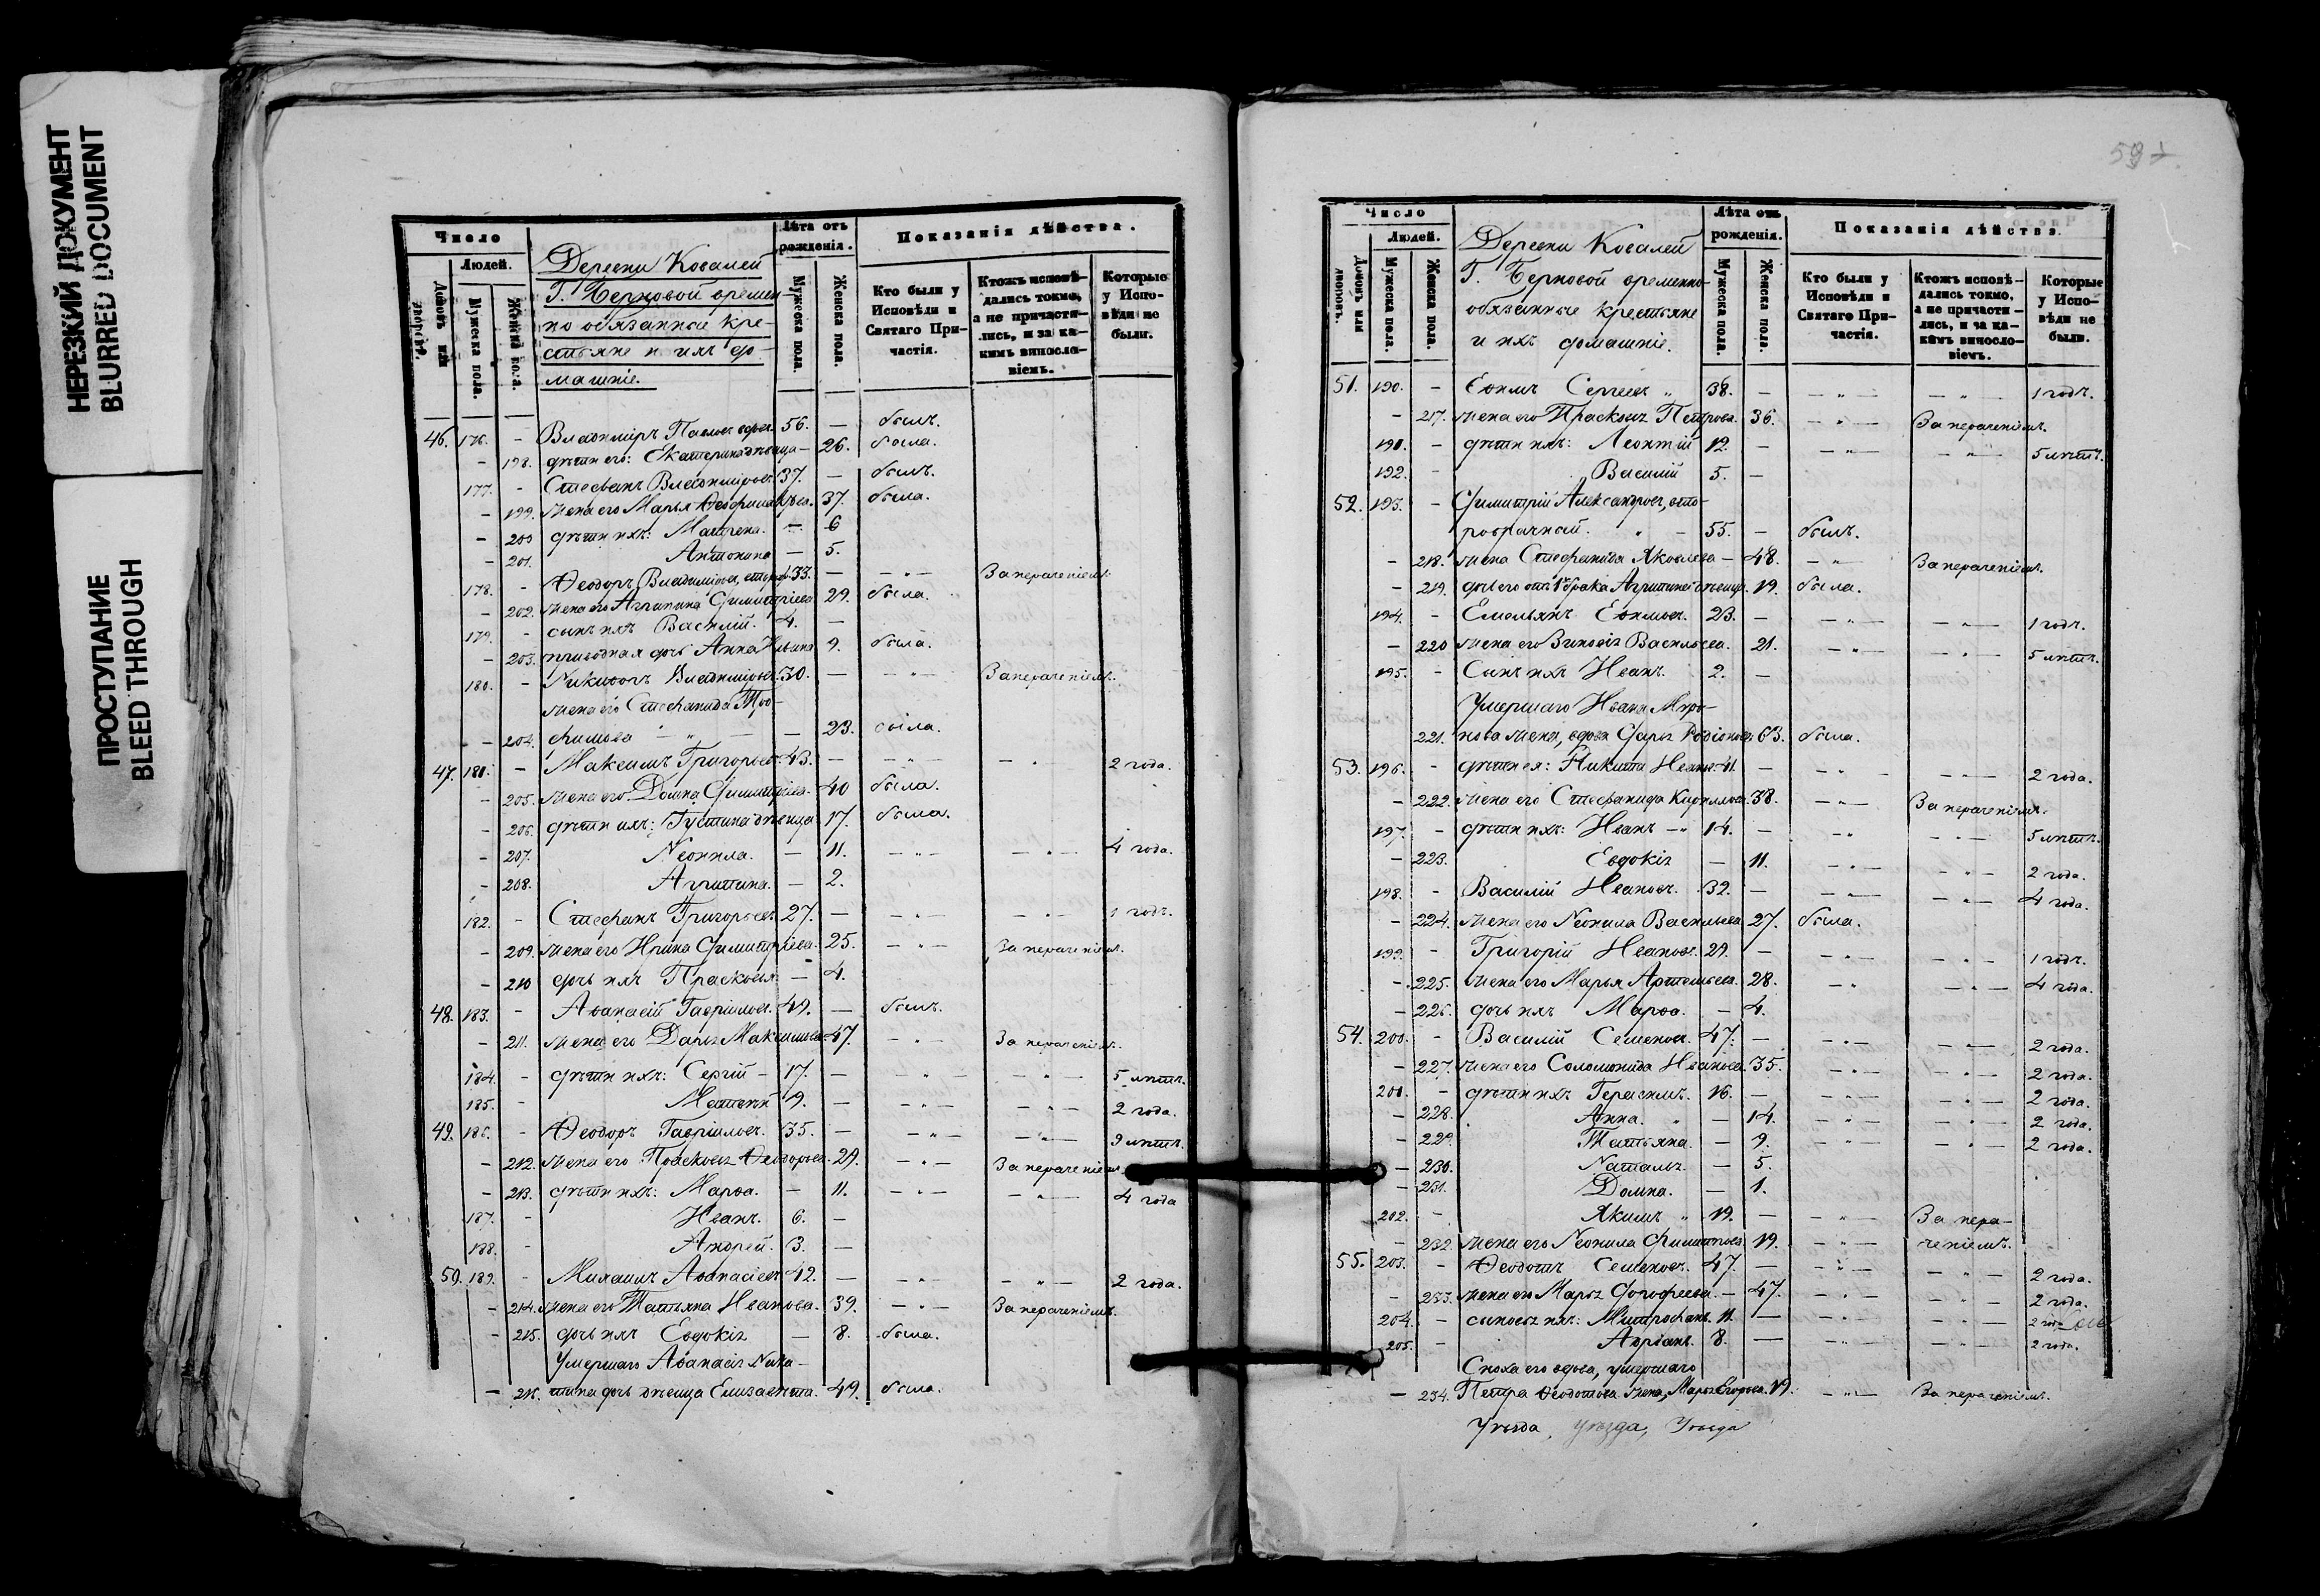 НЕРЕЗКИЙ ДОКУМЕНТ
BLURRED DOCUMENT
ПРОСТУПАНИЕ
BLEED THROUGH
Число
Людей.
Домовъ или дворовъ.
Мужеска пола.
Женска пола.
Деревни Ковалей
Г. Берновой времен-
но обязанные кре-
стьяне и ихъ до-
машніе.
Лѣта отъ рожденія.
Мужеска пола.
Женска пола.
Показанія дѣйства.
Кто были у Исповѣди и Святаго При-частія.
Ктожъ исповѣ-дались токмо, а не причасти-лись, и за ка-кимъ винosло-віемъ.
Которые у Испо-вѣди не были.
46. 176. - Владиміръ Павловъ вдовъ. 56. — былъ.
- 198. дѣти его: Екатерина дѣвица — 26. была.
177. - Стефанъ Владиміровъ 37. — былъ.
- 199. жена его Марья Ѳеофилактова. 37. была.
- 200 дѣти ихъ: Матрена. — 6
- 201. Антонина — 5.
178. - Ѳеодоръ Владиміровъ, 33. — — „ — За нерачéніемъ.
- 202. жена его Агрипина Димитріева 29. была.
179. - сынъ ихъ Василій. 4. —
- 203. приводная дочь Анна 9. была.
180. - Никифоръ Владиміровъ. 30. — — „ — За нераченіемъ.
жена его Стефанида Тро-
- 204. фимова — „ — — 23. была.
47. 181. - Максимъ Григорьевъ. 43. — — „ — — „ — 2 года.
- 205. жена его Домна Димитріева. 40 была.
- 206. дѣти ихъ: Густина дѣвица 17. была.
- 207. Неонила. — 11. — „ — — „ — 4 года.
- 208. Агрипина. — 2.
182. - Стефанъ Григорьевъ 27. — — „ — — „ — 1 годъ.
- 209. жена его Ирина Димитріева. 25. — „ — За нераченіемъ.
- 210 дочь ихъ Прасковья — 4.
48. 183. - Аѳанасій Гавріиловъ. 49. — былъ.
- 211. жена его Дарья Максимова 47. — „ — За нераченіемъ.
184. - дѣти ихъ: Сергій — 17. — — „ — — „ — 5 лѣтъ.
185. - Матвѣй 9. — — „ — — „ — 2 года.
49. 186. - Ѳеодоръ Гавріиловъ. 35. — — „ — — „ — 9 лѣтъ.
- 212. жена его Прасковья Ѳеодорова. 29. — „ — За нераченіемъ.
- 213. дѣти ихъ: Марѳа. — 11. — „ — — „ — 4 года
187. - Иванъ. 6. —
188. - Андрей. 3. —
50. 189. - Михаилъ Аѳанасіевъ 42. — — „ — — „ — 2 года.
- 214. жена его Татьяна Иванова. 39. — „ — За нераченіемъ.
- 215. дочь ихъ Евдокія — 8. была.
Умершаго Аѳанасія Ники-
- 216. тина дочь дѣвица Елизавета. 49. была.
Число
Людей.
Домовъ или дворовъ.
Мужеска пола.
Женска пола.
Деревни Ковалей
Г. Берновой временно-
обязанные крестьяне
и ихъ домашніе.
Лѣта отъ рожденія.
Мужеска пола.
Женска пола.
Показанія дѣйства.
Кто были у Исповѣди и Святаго При-частія.
Ктожъ исповѣ-дались токмо, а не причасти-лись, и за ка-кимъ винosло-віемъ.
Которые у Испо-вѣди не были.
51. 190. - Еѳимъ Сергеевъ „ 38. — — „ — — „ — 1 годъ.
- 217. жена его Прасковья Петрова. 36. — „ — За нераченіемъ.
191. - дѣти ихъ: Леонтій 12. — — „ — — „ — 5 лѣтъ.
192. - Василій 5. —
52. 193. - Димитрій Александровъ, вто-
робрачный. „ — 55. — былъ.
- 218. жена Стефанида Яковлева — 48. — „ — За нераченіемъ.
- 219. дочь его отъ 1 брака Агрипина дѣвица. 19. была.
194. - Емельянъ Еѳимовъ. 23. — — „ — — „ — 1 годъ.
- 220 жена его Зиновія Васильева. 21. — „ — — „ — 5 лѣтъ.
195. - Сынъ ихъ Иванъ. 2. —
Умершаго Ивана Миро-
221. нова жена, вдова Дарья Родіонова 63. была.
53. 196. - дѣти ея: Никита Ивановъ 41. — — „ — — „ — 2 года.
- 222. жена его Стефанида Кирилова 38. — „ — За нераченіемъ.
197. - дѣти ихъ: Иванъ — „ 14. — — „ — „ — 5 лѣтъ.
- 223. Евдокія — 11. — „ — — „ — 2 года.
198. - Василій Ивановъ. 32. — — „ — — „ — 4 года.
- 224. жена его Неонила Васильева 27. была.
199. - Григорій Ивановъ. 29. — — „ — — „ — 1 годъ.
- 225. жена его Марья Артемьева. 28. — „ — „ — 4 года.
- 226. дочь ихъ Марѳа. — 4.
54. 200. - Василій Семеновъ. 47. — — „ — — „ — 2 года.
- 227. жена его Соломонида Иванова. 35. — „ — — „ — 2 года.
201. - дѣти ихъ Герасимъ. 16. — — „ — — „ — 2 года.
- 228. Анна. „ — 14. — „ — „ — 2 года.
- 229. Татьяна. — 9. — „ — „ — 2 года.
- 230. Наталья. — 5.
- 231. Домна. — 1.
202. - Якимъ „ 19. — — „ — За нера-
- 232. жена его Неонила Филиппова 19. — „ — ченіемъ.
55. 203. - Ѳеодотъ Семеновъ. 47. — — „ — — „ — 2 года.
- 233. жена его Марья Дорофеева. — 47. — „ — — „ — 2 года.
204. - сыновья ихъ: Митрофанъ. 11. — — „ — — „ — 2 года
205. - Адріанъ. 8. — — „ — — „ — 2 года.
Сноха его вдова, умершаго
- 234. Петра Ѳеодотова жена, Марья Егорова. 19. — „ — За нераченіемъ.
Уѣзда, уѣзда, Уѣзда